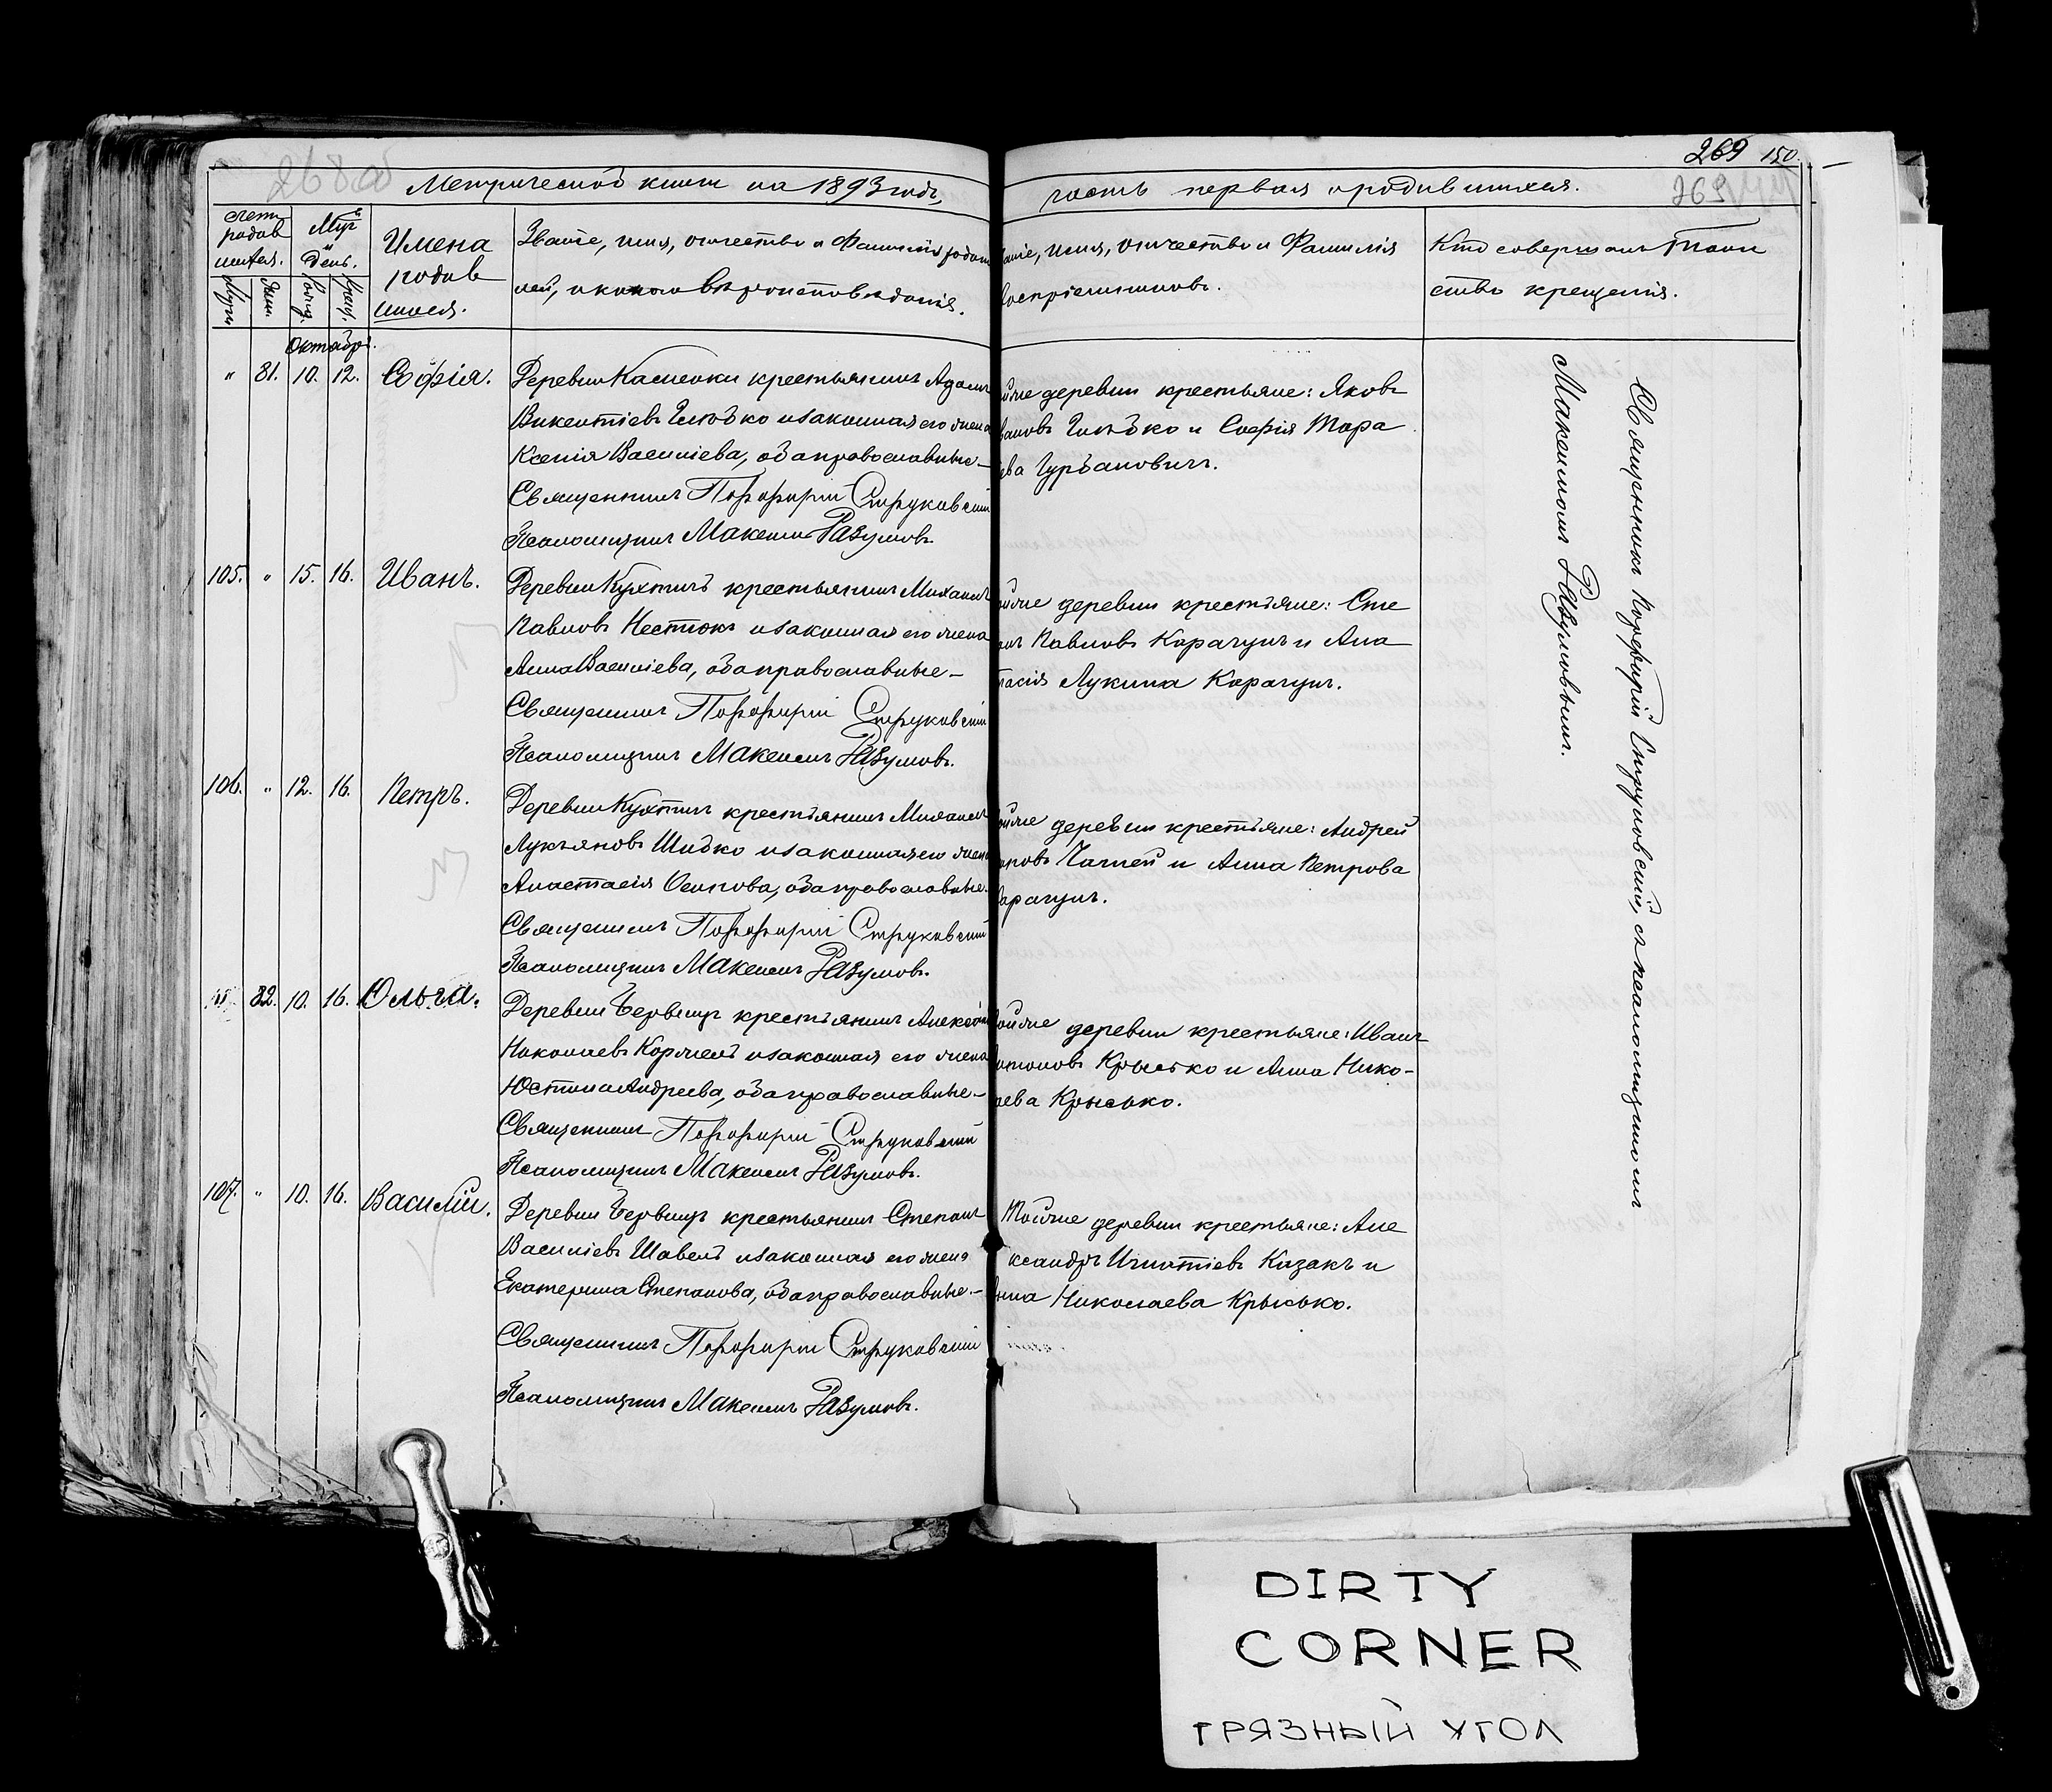 268об
269 150.
269
Метрической книги на 1893 годъ,
часть первая о родившихся.
Счетъ
родив
шихся.
Мѣс.
и
день.
Имена
родив
шихся.
Званіе, имя, отчество и Фамилія родите
лей, и какого вѣроисповѣданія.
аніе, имя, отчество и Фамилія
воспріемниковъ.
Кто совершалъ Таин
ство крещенія.
Октября.
" 81. 10. 12. Софія.
Деревни Каменки крестьянинъ Адамъ
Викентіевъ и законная его жена
Ксенія Василіева, оба православные.—
Священникъ Порфирій Струковскій
Псаломщикъ Максимъ Разумовъ.
ойже деревни крестьяне: Яковъ
вановъ и Софія Тара
ева Гурбановичъ.
105. " 15. 16. Иванъ.
Деревни Кухтичъ крестьянинъ Михаилъ
Павловъ Нестюкъ и законная его жена
Анна Василіева, оба православные.—
Священникъ Порфирій Струковскій
Псаломщикъ Максимъ Разумовъ.
ойже деревни крестьяне: Сте
анъ Павловъ Карачунъ и Ана
тасія Лукина Карачунъ.
106. " 12. 16. Петръ.
Деревни Кухтичъ крестьянинъ Михаилъ
Лукьяновъ Шибко и законная его жена
Анастасія Осипова, оба православные.
Священникъ Порфирій Струковскій
Псаломщикъ Максимъ Разумовъ.
ойже деревни крестьяне: Андрей
и Анна Петрова
арачунъ.
" 82. 10. 16. Ольга.
Деревни Бервищъ крестьянинъ Алексѣй
Николаевъ и законная его жена
Юстина Андреева, оба православные.—
Священникъ Порфирій Струковскій
Псаломщикъ Максимъ Разумовъ.
ойже деревни крестьяне: Иванъ
нтоновъ Крысько и Анна Нико-
аева Крысько.
107. " 10. 16. Василій.
Деревни Бервищъ крестьянинъ Степанъ
Василіевъ Шавель и законная его жена
Екатерина Степанова, оба православные.—
Священникъ Порфирій Струковскій
Псаломщикъ Максимъ Разумовъ.
Тойже деревни крестьяне: Але
ксандръ Игнатіевъ Казакъ и
нна Николаева Крысько.
Священникъ Порфирій Струковскій, съ псаломщикомъ
Максимомъ Разумовымъ.
DIRTY
CORNER
ГРЯЗНЫЙ УГОЛ